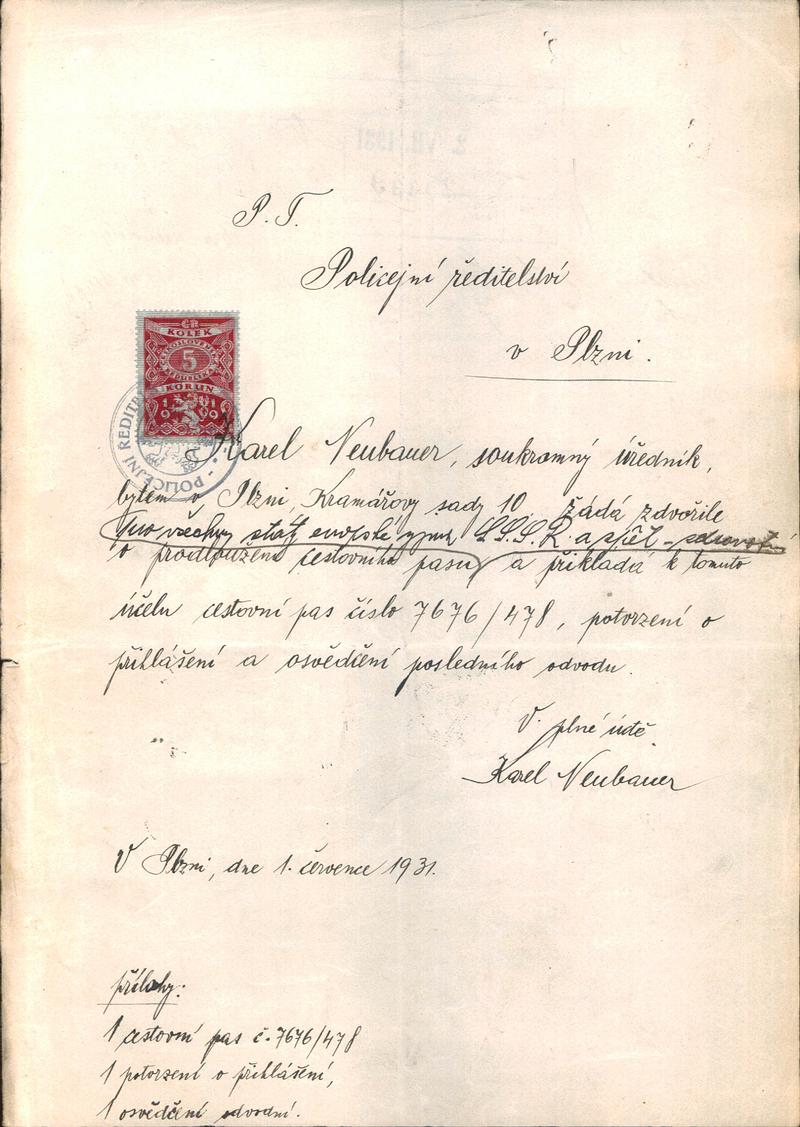 P. T.
Policejní ředitelství
v Plzni.
ČR
KOLEK
5
KORUN
POLICEJNÍ ŘEDITE
Karel Neubauer, soukromný úředník,
bytem v Plzni, Kramářovy sady 10 žádá zdvořile
pro všechny státy evropské vyjma S.S.S.R. a zpět
o prodloužení cestovního pasu a přikládá k tomuto
účelu cestovní pas číslo 7676/478, potvrzení o
přihlášení a osvědčení posledního odvodu.
V plné úctě
Karel Neubauer
V Plzni, dne 1. července 1931.
přílohy:
1 cestovní pas č. 7676/478
1 potvrzení o přihlášení,
1 osvědčení odvodní.